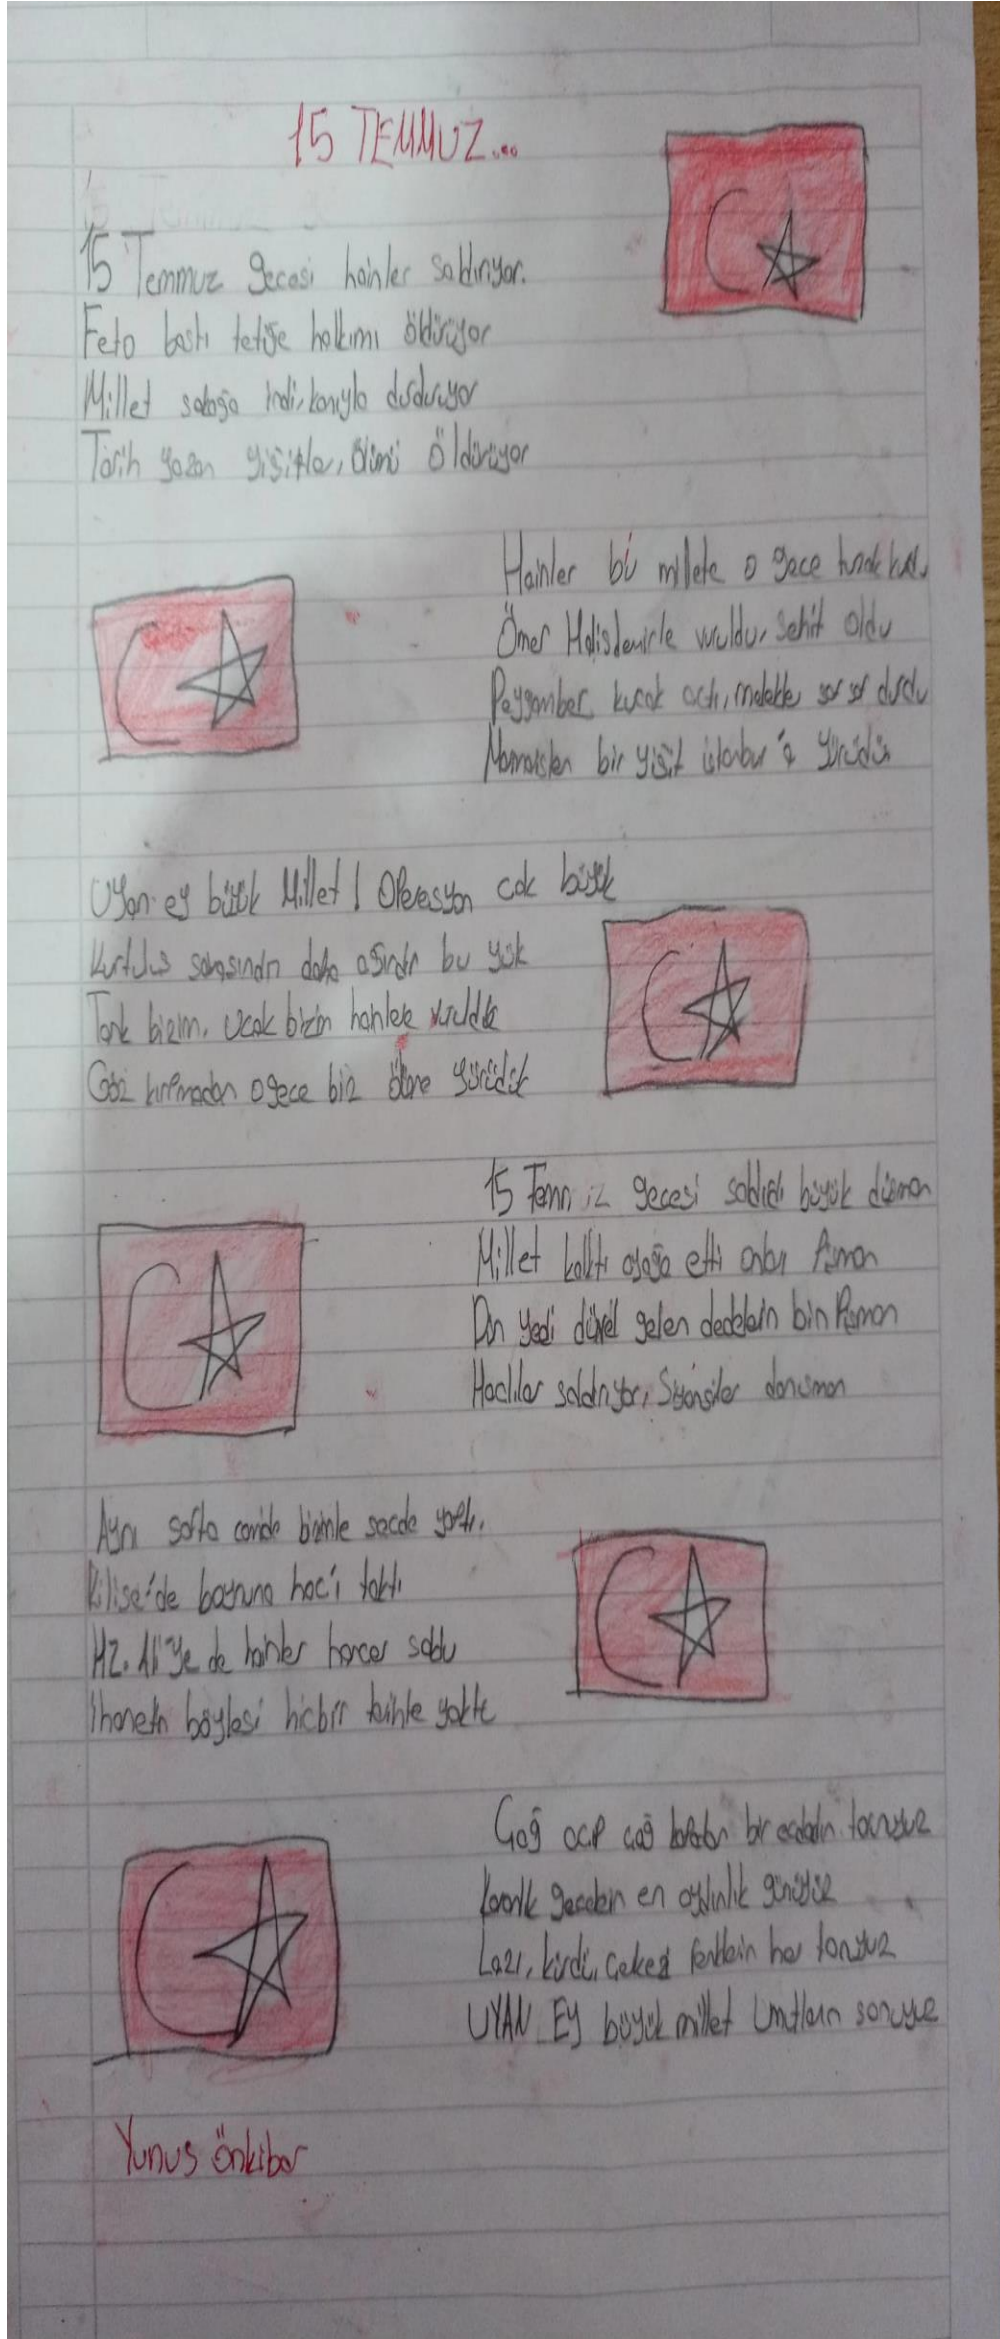 15 TEMMUZ...
15 Temmuz gecesi hainler saldırıyor.
Feto bastı tetiğe halkımı öldürüyor
Millet sokağa indi, kanıyla durduruyor
Tarih yazan yiğitler, ölümü öldürüyor
Hainler bu millete o gece tuzak
Ömer Halisdemirle vuruldu, şehit oldu
Peygamber kucak actı, melekler saf saf durdu
bir yiğit istanbul'a yürüdü
Uyan ey büyük Millet! Operasyon cok büyük
Kurtuluş savaşından daha ağırdır bu yük
Tank bizim, ucak bizim hainlere vurulduk
Gözü kırpmadan o gece biz ölüme yürüdük
15 Temmuz gecesi saldırdı büyük düşman
Millet kalktı ayağa etti onları Pişman
Dün yedi düvel gelen dedelerin bin Pişman
Haclılar saldırıyor, Siyonistler danışman
Aynı safta camide bizimle secde yaptı.
Kilise'de boynuna hac'ı taktı
HZ. Ali'ye de hainler hancer sapladı
ihanetin böylesi hicbir tarihte yoktu
Cağ acıp cağ kapatan bir ecdadın torunuyuz
Karanlık gecelerin en aydınlık günüyüz
Lazı, kürdü, Çerkezi
UYAN EY büyük millet Umutların sonuyuz
Yunus Önkibar